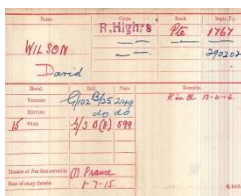 Name. Corps. Rank. Regtl. No.
R. Highrs Pte 1767
WILSON — — 290202
David
Medal. Roll. Page. Remarks.
VICTORY G/102 B/25 2449 K in A 13-4-16.
BRITISH do do
15 STAR G/3 B(B) 599
Theatre of War first served in (1) France
Date of entry therein 1-7-15.